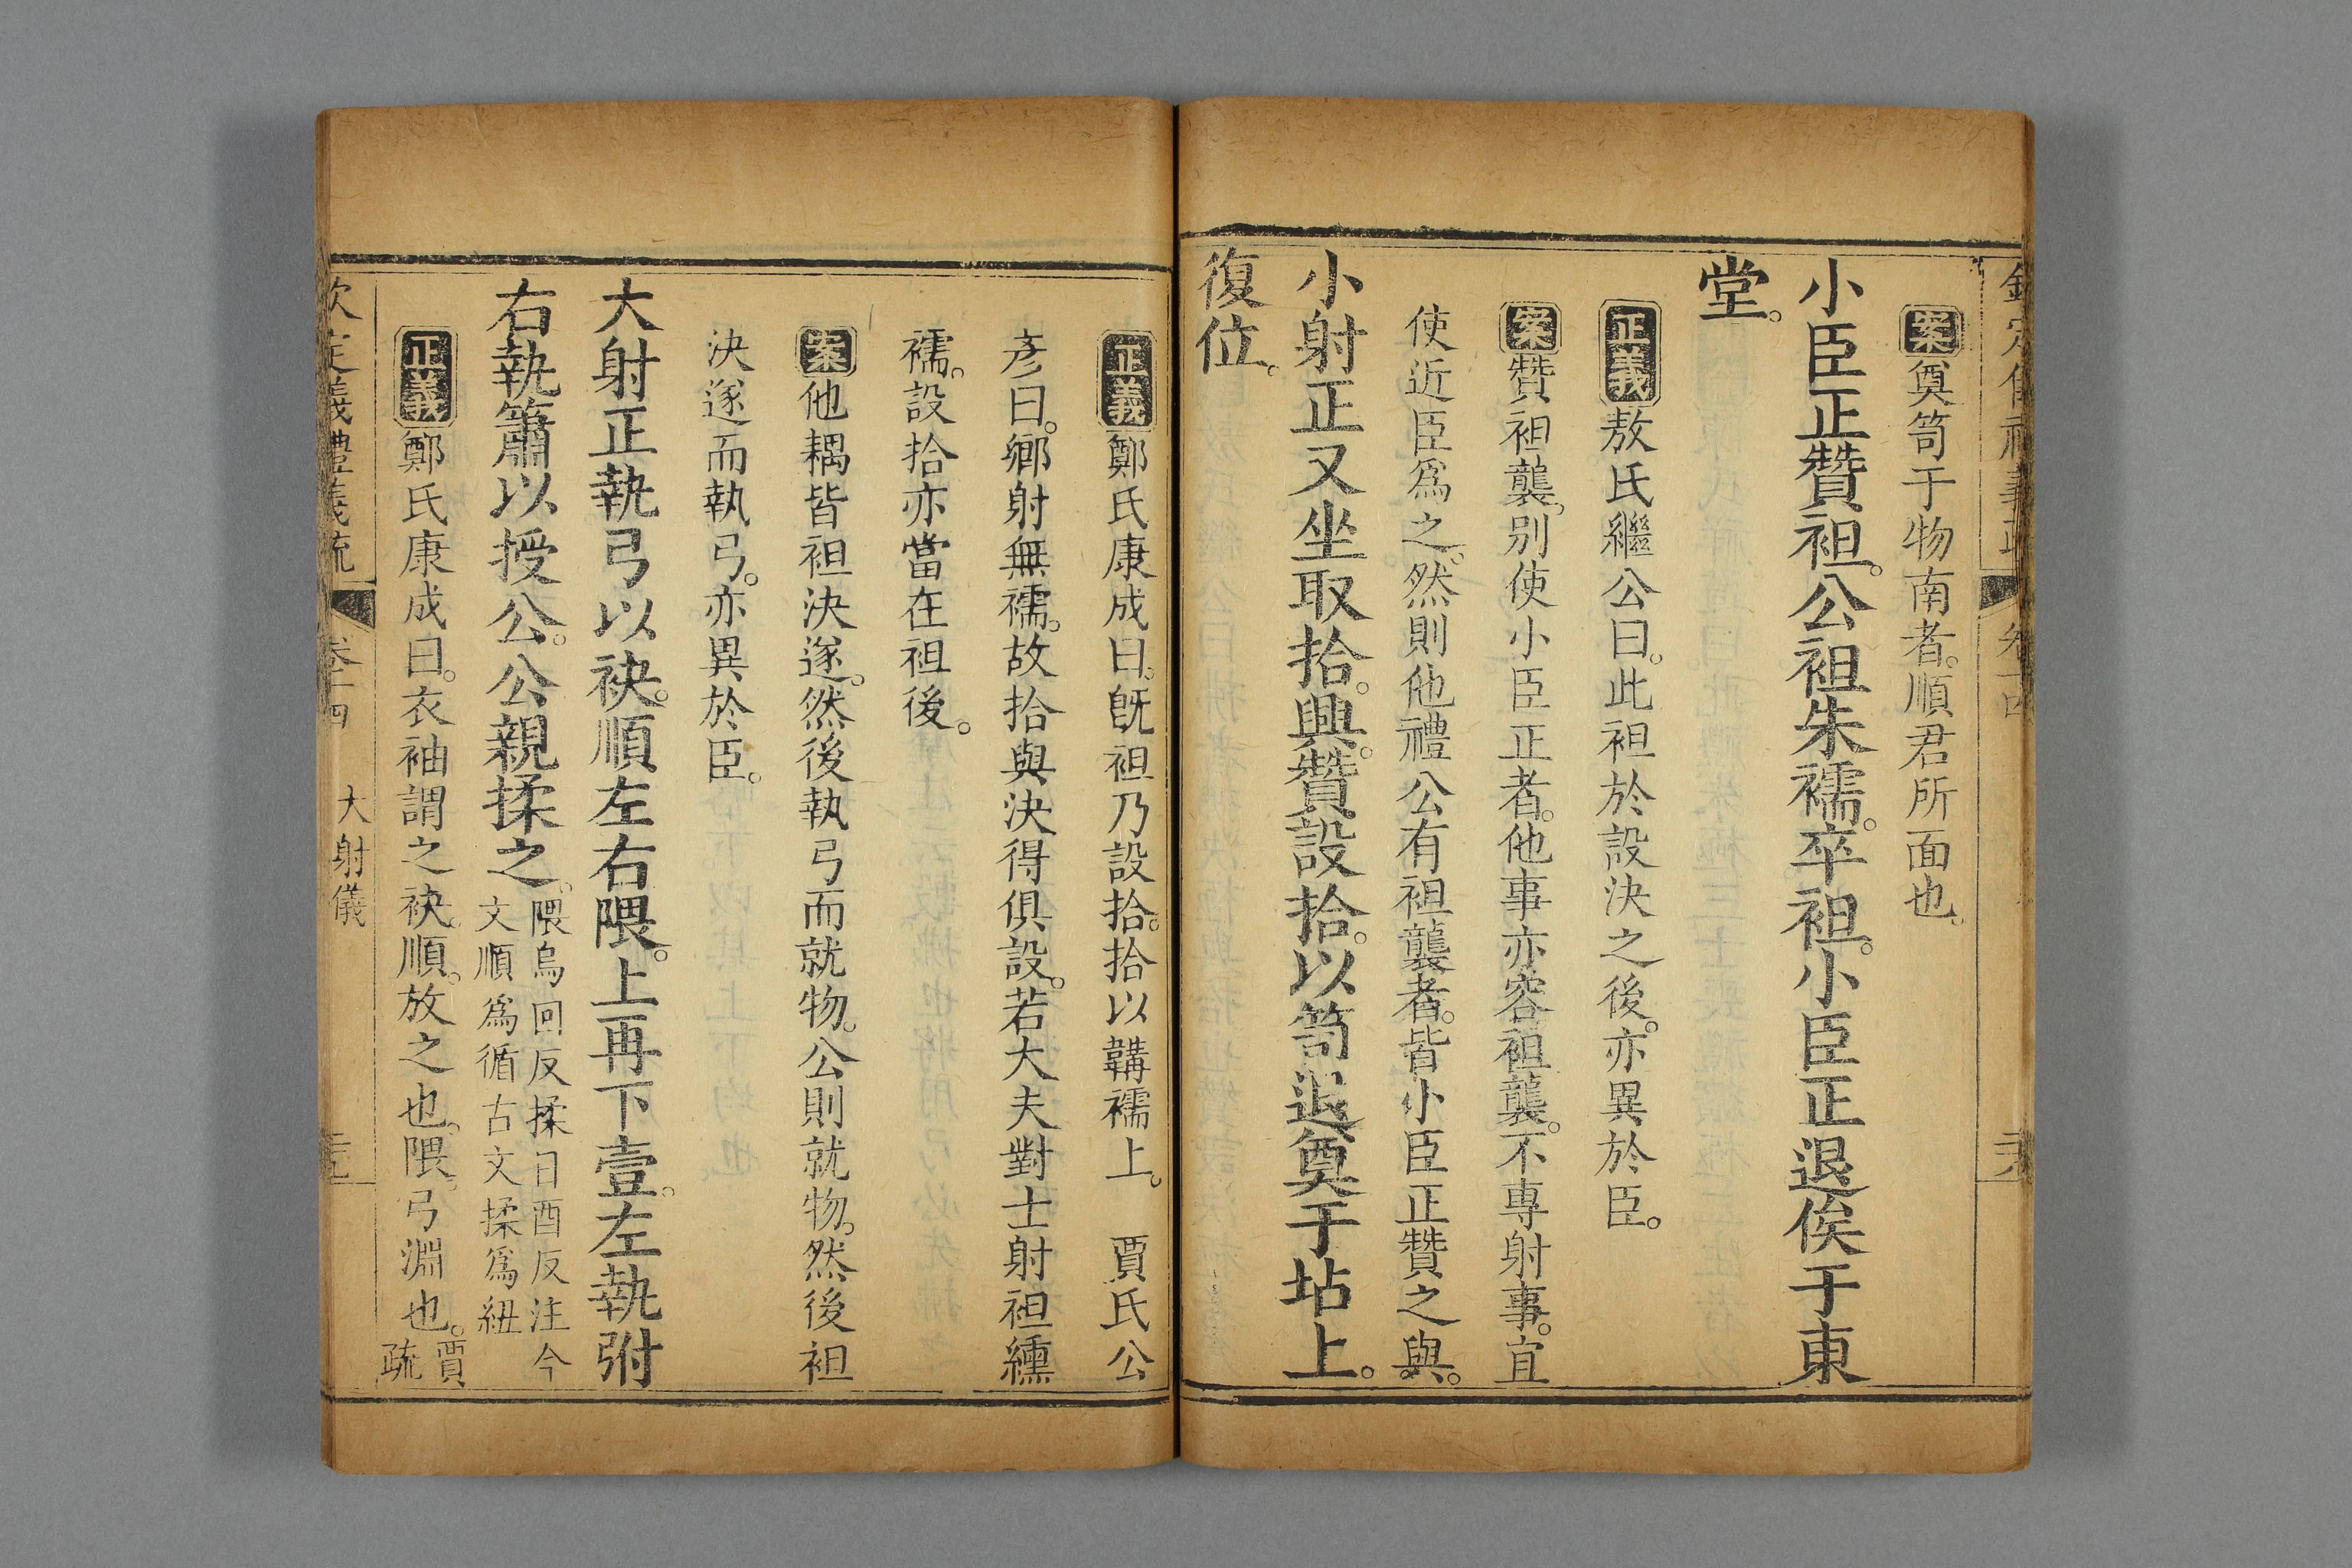 案奠笥于物南者順君所面也
小臣正贊袒公袒朱襦卒袒小臣正退俟于東
堂
正義敖氏繼公曰此袒於設決之後亦異於臣
案贊袒襲別使小臣正者他事亦容袒襲不專射事宜
使近臣爲之然則他禮公有袒襲者皆小臣正贊之與
小射正又坐取拾興贊設拾以笥退奠于坫上
復位
正義鄭氏康成曰旣袒乃設拾拾以韝襦上　賈氏公
彥曰鄉射無襦故拾與決得俱設若大夫對士射袒纁
襦設拾亦當在袒後
案他耦皆袒決遂然後執弓而就物公則就物然後袒
決遂而執弓亦異於臣
大射正執弓以袂順左右隈上再下壹左執弣
右執簫以授公公親揉之隈烏回反揉日酉反注今
文順爲循古文揉爲紐
正義鄭氏康成曰衣袖謂之袂順放之也隈弓淵也賈
疏
欽定儀禮義疏　卷十四　大射儀